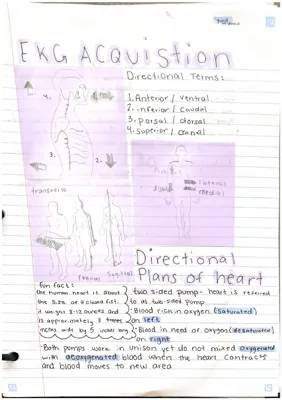 EKG ACQUISTION
Directional Terms:
1. Anterior / ventral
2. inferior / caudal
3. Dorsal / dorsal
4. superior / cranial
4.
3.
2.
lateral
medial
transverse
Directional
Plans of heart
fun fact:
the human heart is about
the size of a closed fist.
it weighs 8-12 ounces and
is approximately 5 inches
two sided pump- heart is referred
to as two-sided pump
Blood rich in oxygen (saturated)
on left
Blood in need of oxygen (desaturated)
on right
Both pumps work in unison yet do not mixed oxygenated
with deoxygenated blood when the heart contracts
and blood moves to new area